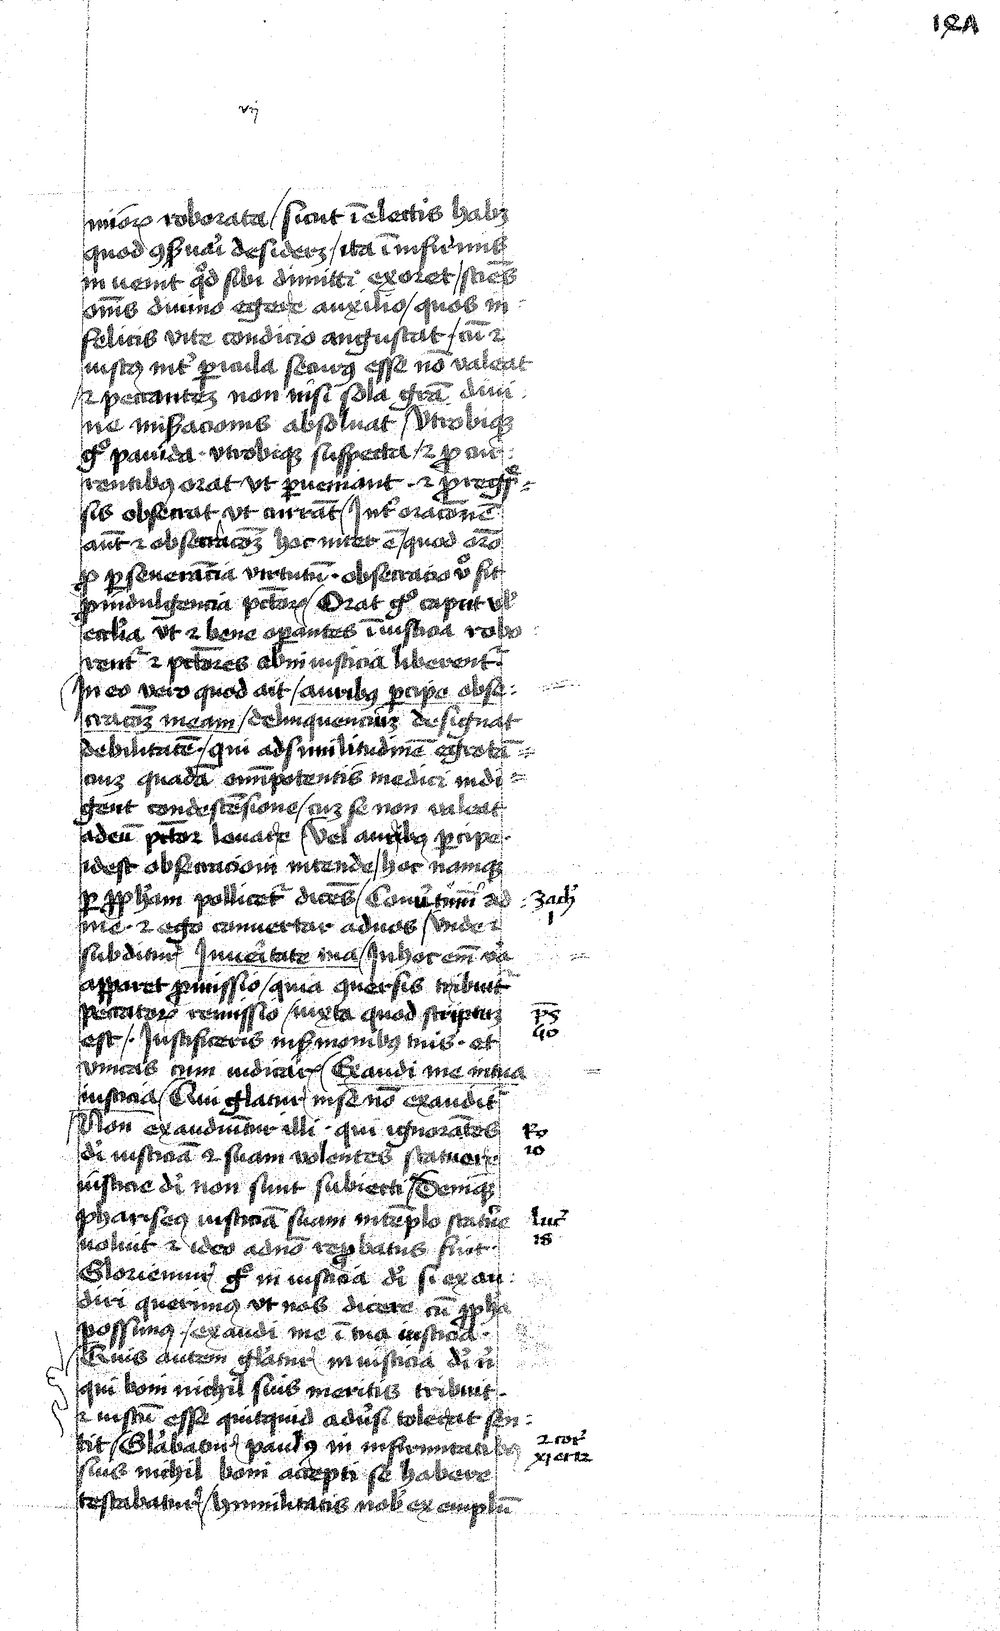 19A
vij
miior roborata / sicut i electis habz
quod 9suari desiderz / ita i infirmis
in uenit qd sibi dimitti exoret / sciēs
om̄s diuino egere auxilio / quos in
felicis vite condicio angustat / cū ⁊
iust9 int picula secur9 esse nō valeat
/ ⁊ peccantez non nisi sola grā diui
ne miseracionis absoluat / Vtrobiqz
g° pauida · vtrobiqz suspecta / ⁊ p cur
rentib9 orat vt pueniant · ⁊ p regres
sis obsecrat vt currāt / Int oracōnē
aūt ⁊ obsecracōz hoc inter ē / quod orō
p pseuerācia virtutū · obsecracio v° sit
p indulgencia pctor / Orat g° caput vl
eccl'ia vt ⁊ bene opantes i iusticia robo
rent ⁊ pctores ab iniusticia liberent
In eo vero quod ait / aurib9 pcipe obse
cracōz meam / delinquenciuz designat
debilitatē / qui ad similitudinē egrotā
cuz quadā omipotentis medici indi
gent condescēsione / cuz se non valeat
ad eū pctor leuare / Vel aurib9 pcipe
id est obsecracioni intende / hoc namqz
p ppham pollicet dicēs / Conutimi ad
me · ⁊ ego conuertar ad uos / Vnde ⁊
subditur In ueritate tua / In hoc em va
apparet pmissio / quia quersis tribuit
peccator remissio / iuxta quod scriptuz
est / · Iustificeris in smonib9 tuis · et
vincas cum iudicar / Exaudi me in tua
iusticia / Qui glatur in se nō exaudit
Non exaudiūtur illi · qui ignorātes
di iusticiā ⁊ suam volentes statuere
iusticie di non sunt subiecti / Deniqz
pharise9 iusticiā suam in tēplo statue
uoluit ⁊ ideo a dnō repbatus fuit
Gloriemur g° in iusticia di si exau
diri querim9 vt nos dicere cū ppha
possim9 / exaudi me i tua iusticia
Quis autem glatur in iusticia di n
qui boni nichil suis meritis tribuit
⁊ iustū esse quitquid adusi tolerat sen
tit / Glabatur paul9 in infirmitatib9
suis nichil boni accepti se habere
testabatur / humilitatis nob exemplū
Zach
1
ps
50
Ro
10
luc
18
2 cor
xi et 12